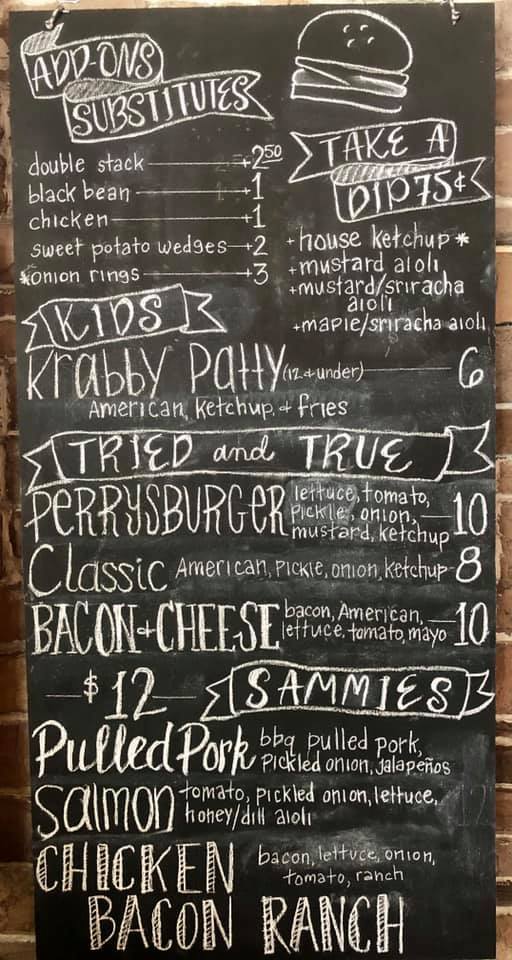 ADD-ONS
SUBSTITUTES
double stack +2.50
black bean +1
chicken +1
sweet potato wedges +2
*onion rings +3
TAKE A
DIP 75¢
+house ketchup*
+mustard aioli
+mustard/sriracha
aioli
+maple/sriracha aioli
KIDS
Krabby Patty (12 & under) 6
American, ketchup, & fries
TRIED and TRUE
PERRYSBURGER lettuce, tomato,
pickle, onion, 10
mustard, ketchup
Classic American, pickle, onion, ketchup 8
BACON & CHEESE bacon, American, 10
lettuce, tomato, mayo
$12 SAMMIES
Pulled Pork bbq pulled pork,
pickled onion, jalapeños
Salmon tomato, pickled onion, lettuce,
honey/dill aioli
CHICKEN bacon, lettuce, onion,
tomato, ranch
BACON RANCH